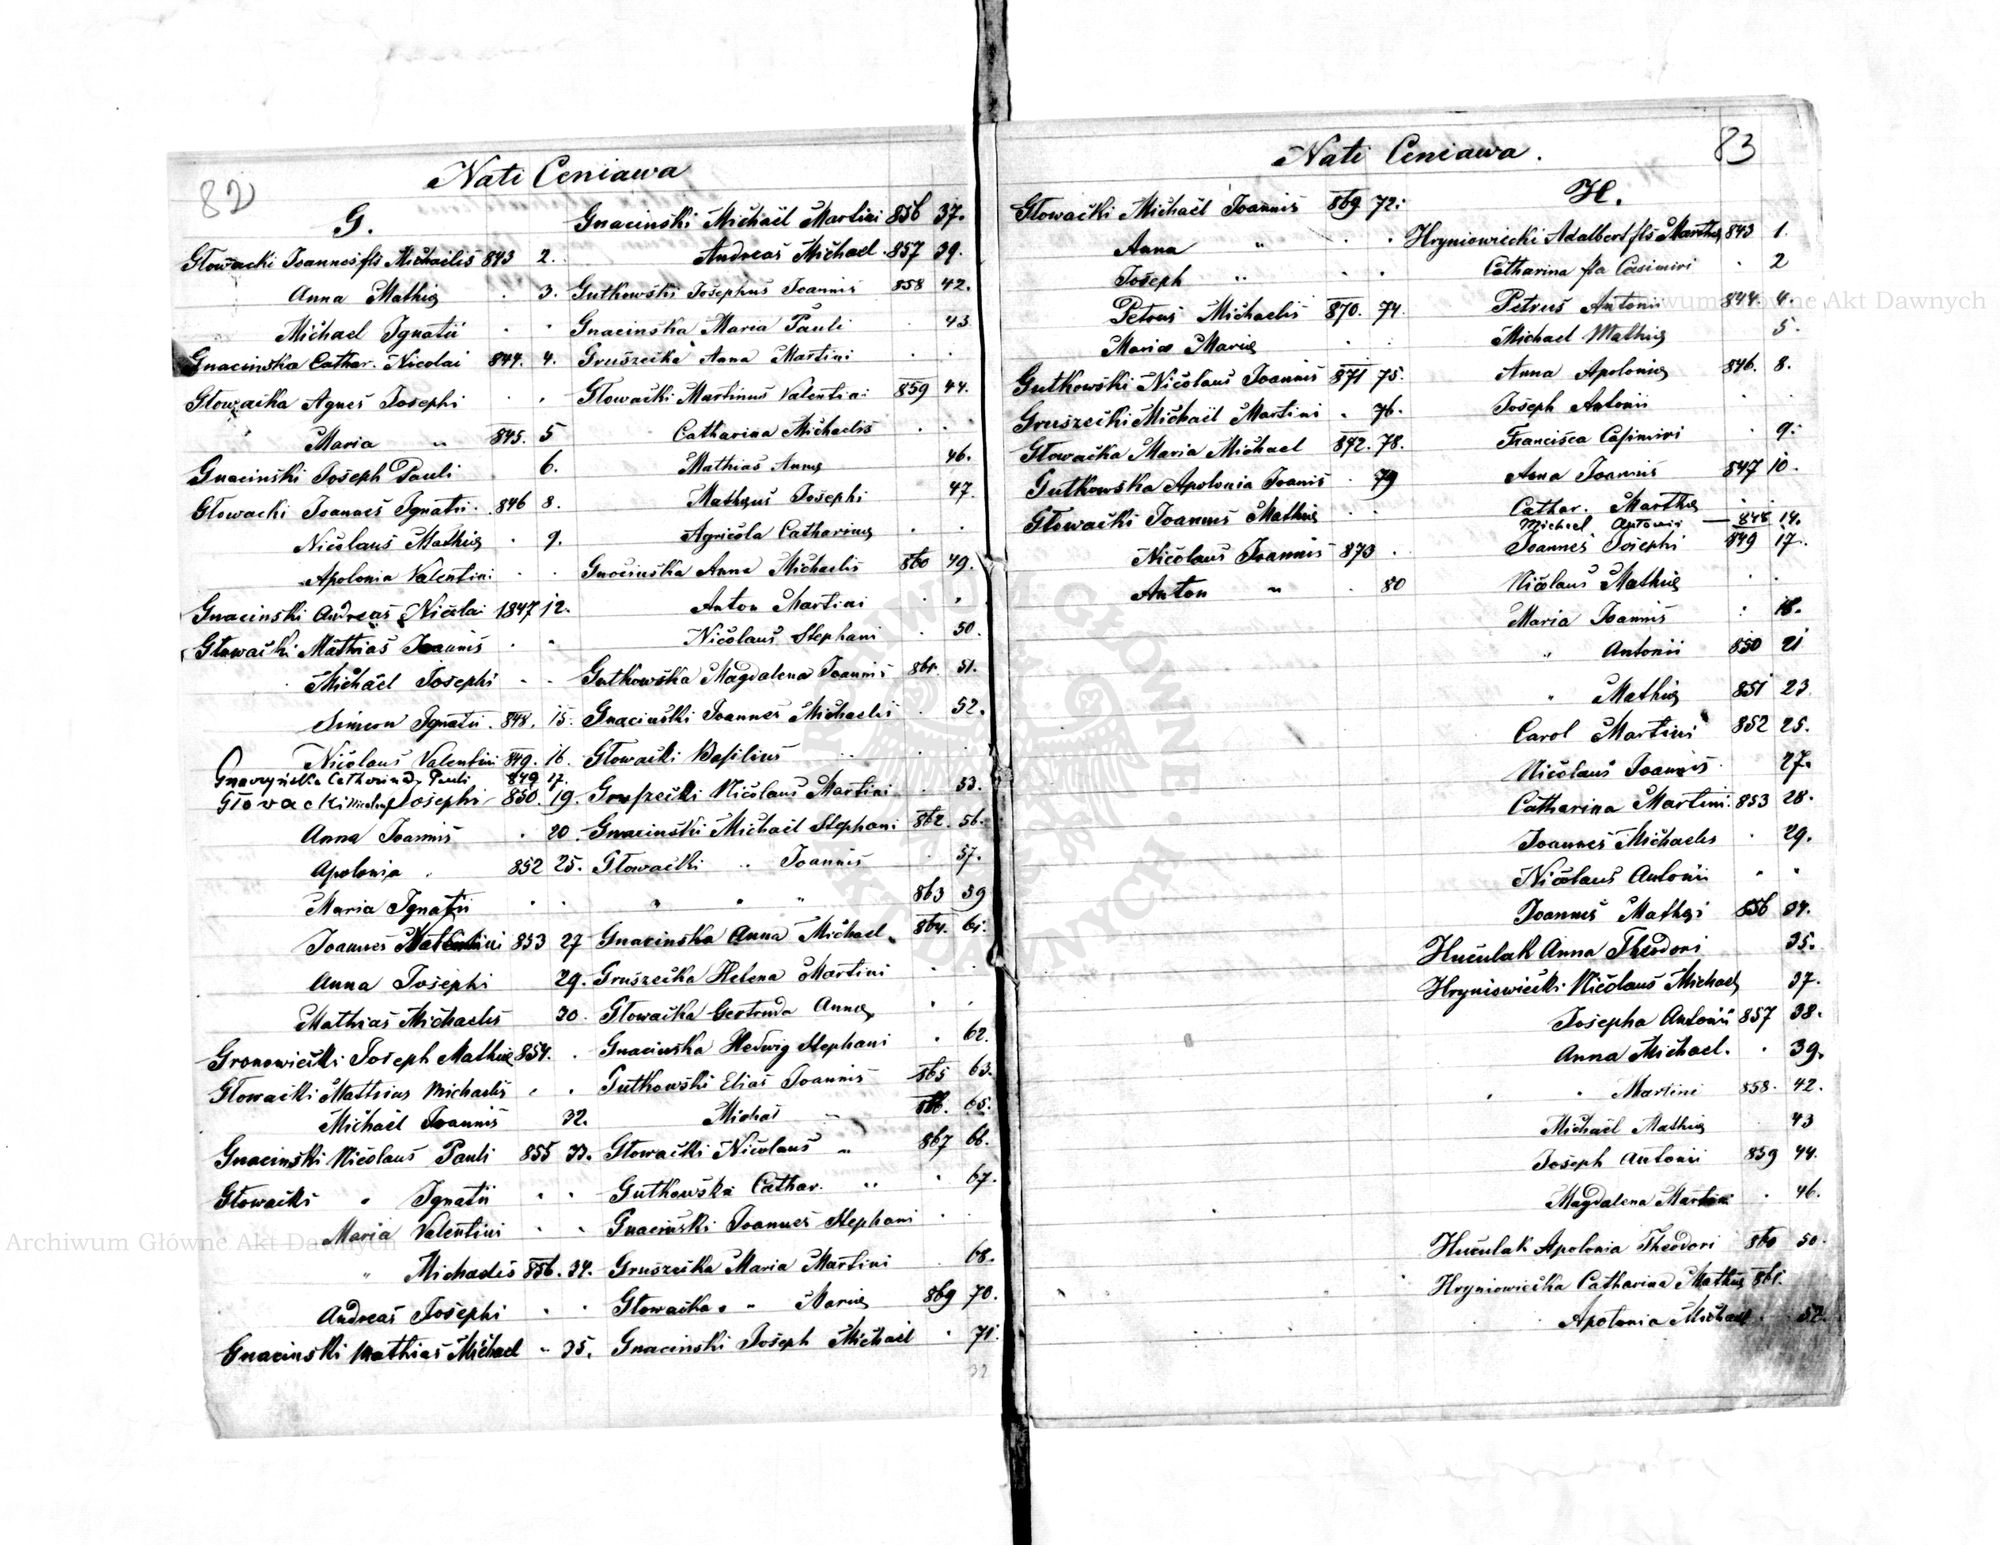 82
Nati Ceniawa
G.
Głowacki Joannes fls Michaelis 843 2.
Anna Mathiæ . 3.
Michael Ignatii . "
Gnacinska Cathar. Nicolai 844. 4.
Głowacka Agnes Josephi . .
" Maria " 845. 5
Gnacinski Joseph Pauli 6.
Głowacki Joannes Ignatii . 846 8.
Nicolaus Mathiæ . 9.
Apolonia Valentini . .
Gnacinski Andreas Nicolai 1847 12.
Głowacki Mathias Joannis . "
Michael Josephi . .
Simeon Ignatii . 848. 15.
Nicolaus Valentini 849. 16
Gnaczyńska Catharina Pauli 849 17.
Głowacki Josephi 850. 19.
Anna Joannis . 20.
Apolonia . 852 25.
Maria Ignatii . .
Joannes Valentini 853 27
Anna Josephi 29.
Mathias Michaelis 30.
Gronowiecki Joseph Mathiæ 854. .
Głowacki Mathias Michaelis . .
Michael Joannis 32.
Gnacinski Nicolaus Pauli 855 33.
Głowacki " Ignatii . .
Maria Valentini . .
" Michaelis 856. 34.
Andreas Josephi . .
Gnacinski Mathias Michael " 35.
Gnacinski Michael Martini 856 37.
Andreas Michael . 857 39.
Gutkowski Josephus Joannis 858 42.
Gnacinska Maria Pauli . 43
Gruszecka Anna Martini . .
Głowacki Martinus Valentini 859 44.
Catharina Michaelis . .
Mathias Annæ 46.
Matheus Josephi 47.
Agricola Catharinæ . .
Gnacinska Anna Michaelis 860 49.
Anton Martini . .
Nicolaus Stephani . 50.
Gutkowska Magdalena Joannis 861. 51.
Gnacinski Joannes Michaelis . 52.
Głowacki Basilius . .
Gruszecki Nicolaus Martini . 53.
Gnacinski Michael Stephani 862. 56.
Głowacki " Joannis . 57.
" " " 863 59
Gnacinska Anna Michael. 864. 61.
Gruszecka Helena Martini . .
Głowacka Gertruda Annæ . .
Gnacinska Hedwig Stephani . 62.
Gutkowski Elias Joannis 865 63.
Michael " 866. 65.
Głowacki Nicolaus " 867 66.
Gutkowska Cathar. " . 67.
Gnacinski Joannes Stephani . .
Gruszecka Maria Martini . 68.
Głowacka " " Mariæ 869 70.
Gnacinski Joseph Michael . 71.
32
Nati Ceniawa.
83
Głowacki Michael Joannis 869 72.
Anna " . .
Joseph " . .
Petrus Michaelis 870. 74.
Maria Mariæ . .
Gutkowski Nicolaus Joannis 871 75.
Gruszecki Michael Martini . 76.
Głowacka Maria Michael 872. 78.
Gutkowska Apolonia Joannis . 79
Głowacki Joannes Mathiæ . .
Nicolaus Joannis 873 .
Anton " . 80
H.
Hryniowiecki Adalbert fls Marthæ 843 1.
Catharina fla Casimiri . 2
Petrus Antonii 844. 4.
Michael Mathiæ 5.
Anna Apoloniæ 846. 8.
Joseph Antonii . .
Francisca Casimiri . 9.
Anna Joannis 847 10.
Cathar. Marthæ
Michael Antonii — 848 14.
Joannes Josephi 849 17.
Nicolaus Mathiæ . .
Maria Joannis . 18.
" Antonii 850 21
" Mathiæ 851 23
Carol Martini 852 25.
Nicolaus Joannis 27.
Catharina Martini . 853 28.
Joannes Michaelis . 29.
Nicolaus Antonii . .
Joannes Mathei 856 34.
Huculak Anna Theodori 35.
Hryniowiecki Nicolaus Michael 37.
Josepha Antonii 857 38.
Anna Michael. . 39.
" Martini 858. 42.
Michael Mathiæ 43
Joseph Antonii 859 44.
Magdalena Martini . 46.
Huculak Apolonia Theodori 860 50.
Hryniowiecka Catharina Mathiæ 861.
Apolonia Michael . 52.
Archiwum Główne Akt Dawnych
Archiwum Główne Akt Dawnych
ARCHIWUM GŁÓWNE AKT DAWNYCH